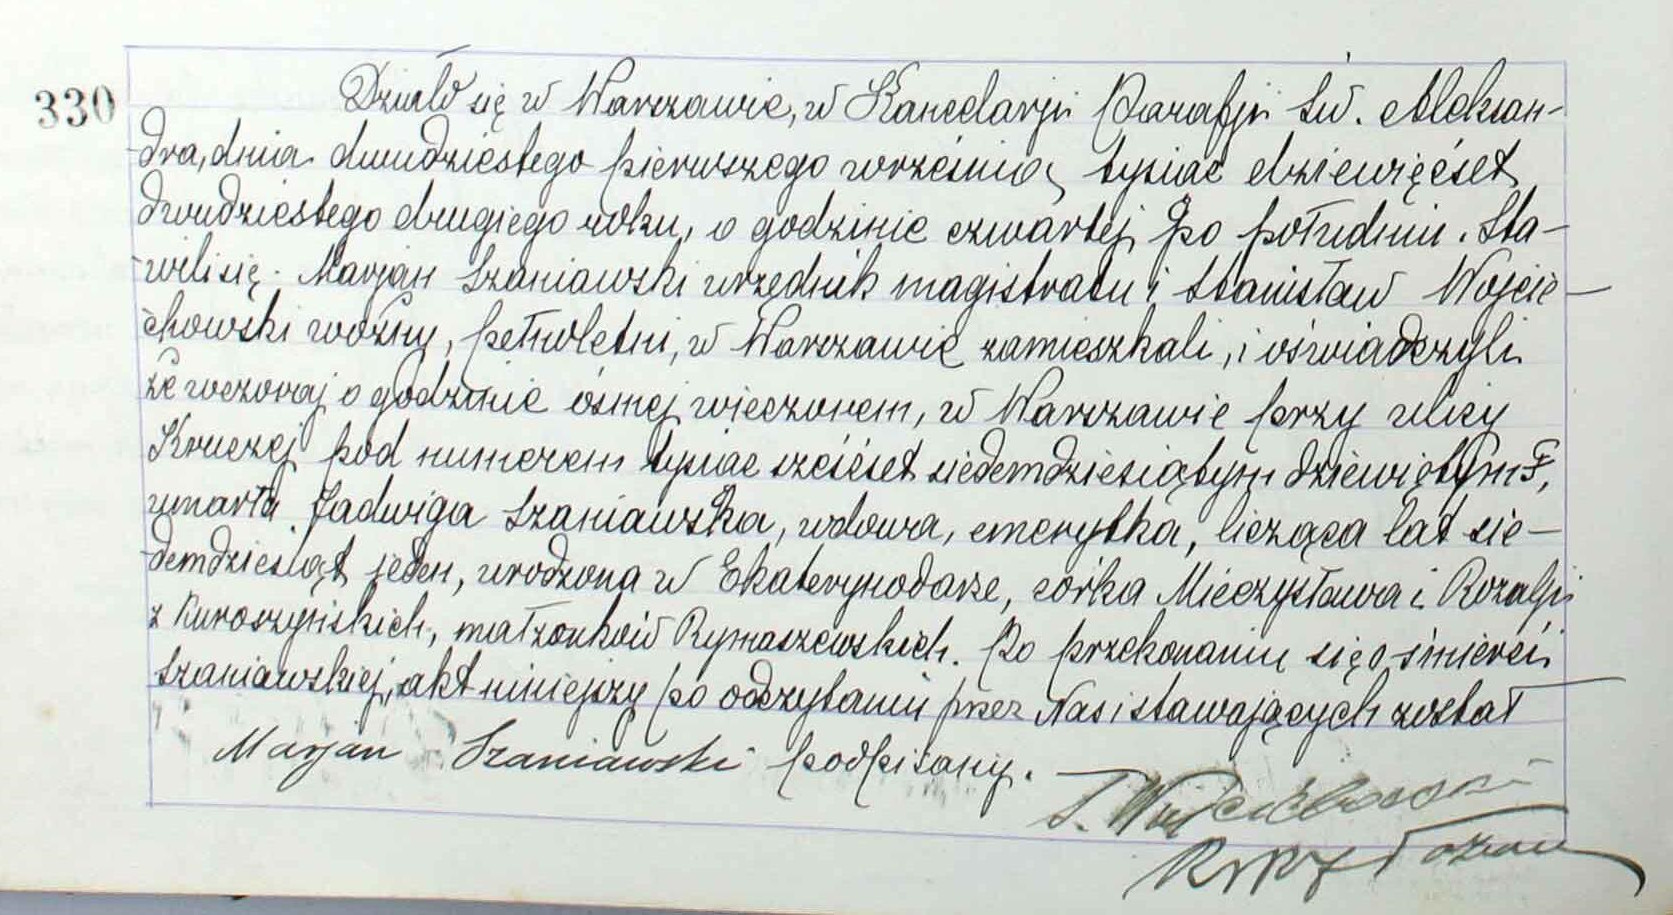 330
Działo się w Warszawie, w Kancelarji Parafji Św. Aleksan-
dra, dnia dwudziestego pierwszego września, tysiąc dziewięćset
dwudziestego drugiego roku, o godzinie czwartej po południu. Sta-
wili się: Marjan Szaniawski urzędnik magistratu i Stanisław Wojcie-
chowski woźny, pełnoletni, w Warszawie zamieszkali, i oświadczyli
że wczoraj o godzinie ósmej wieczorem, w Warszawie przy ulicy
Kruczej pod numerem tysiąc sześćset siedemdziesiątym dziewiątym F,
umarła Jadwiga Szaniawska, wdowa, emerytka, licząca lat sie-
demdziesiąt jeden, urodzona w Ekaterynodarze, córka Mieczysława i Rozalji
z Kuroszyńskich, małżonków Rymaszewskich. Po przekonaniu się o śmierci
Szaniawskiej, akt niniejszy po odczytaniu przez Nas i stawających został
Marjan Szaniawski podpisany.
S. Wojciechowski